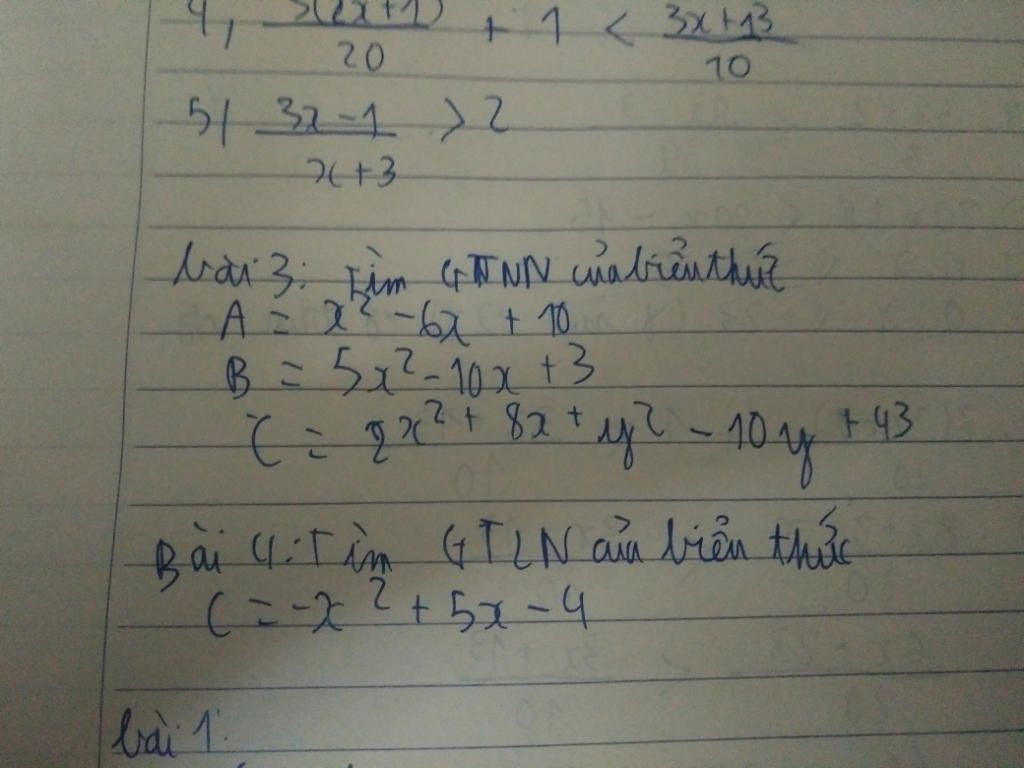 4, (2x+1)/20 + 1 < 3x+13/10
5/ 3x-1/x+3 > 2
bài 3: Tìm GTNN của biểu thức
A = x² - 6x + 10
B = 5x² - 10x + 3
C = 2x² + 8x + y² - 10y + 43
Bài 4: Tìm GTLN của biểu thức
C = -x² + 5x - 4
bài 1: